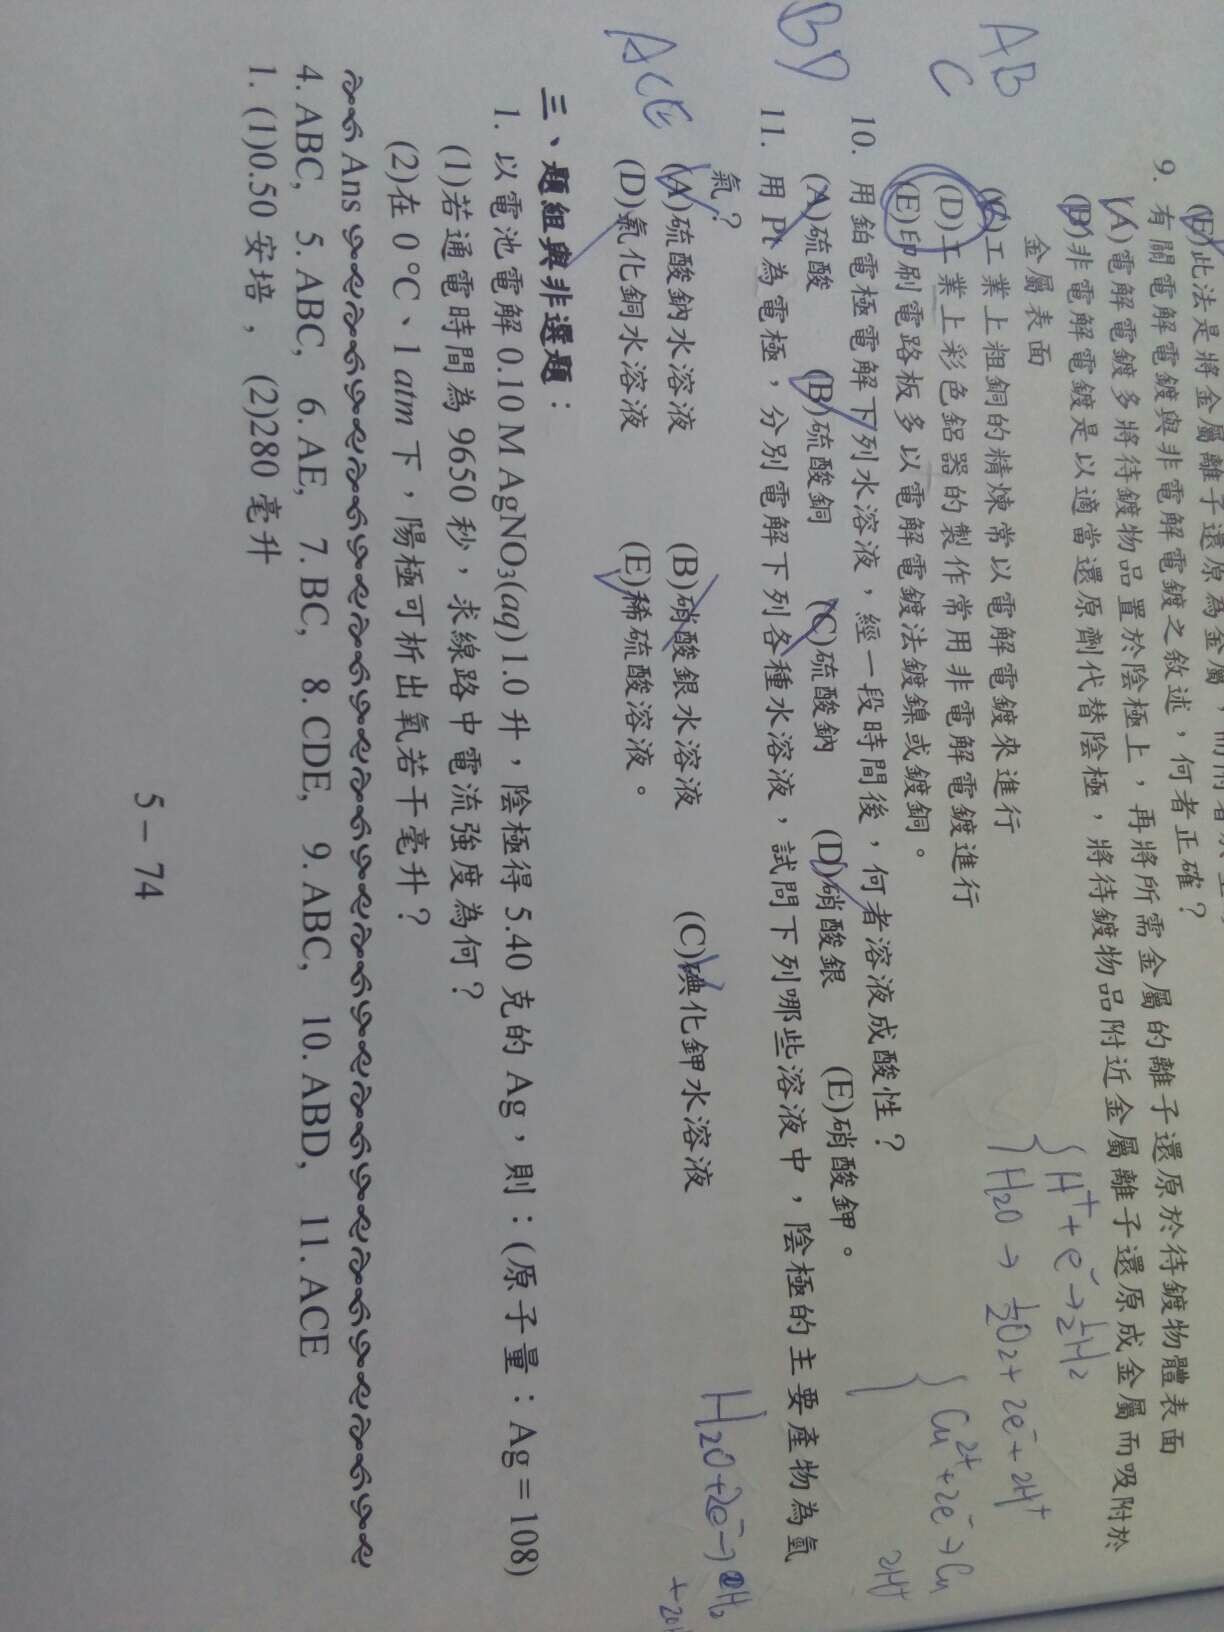 (E)此法是將金屬離子還原為金屬,
9. 有關電解電鍍與非電解電鍍之敘述,何者正確?
(A)電解電鍍多將待鍍物品置於陰極上,再將所需金屬的離子還原於待鍍物體表面
(B)非電解電鍍是以適當還原劑代替陰極,將待鍍物品附近金屬離子還原成金屬而吸附於
金屬表面
(C)工業上粗銅的精煉常以電解電鍍來進行
(D)工業上彩色鋁器的製作常用非電解電鍍進行
(E)印刷電路板多以電解電鍍法鍍鎳或鍍銅。
AB
C
{H⁺+e⁻→½H₂
H₂O→½O₂+2e⁻+2H⁺
10. 用鉑電極電解下列水溶液,經一段時間後,何者溶液成酸性?
(A)硫酸 (B)硫酸銅 (C)硫酸鈉 (D)硝酸銀 (E)硝酸鉀。
BD
{Cu²⁺+2e⁻→Cu
2H⁺
11. 用 Pt 為電極,分別電解下列各種水溶液,試問下列哪些溶液中,陰極的主要產物為氫
氣?
(A)硫酸鈉水溶液 (B)硝酸銀水溶液 (C)碘化鉀水溶液
(D)氯化銅水溶液 (E)稀硫酸溶液。
ACE
H₂O+2e⁻→H₂
三、題組與非選題:
1. 以電池電解 0.10 M AgNO₃(aq) 1.0 升,陰極得 5.40 克的 Ag,則:(原子量:Ag=108)
(1)若通電時間為 9650 秒,求線路中電流強度為何?
(2)在 0℃、1 atm 下,陽極可析出氧若干毫升?
Ans
4. ABC, 5. ABC, 6. AE, 7. BC, 8. CDE, 9. ABC, 10. ABD, 11. ACE
1. (1)0.50 安培, (2)280 毫升
5－74